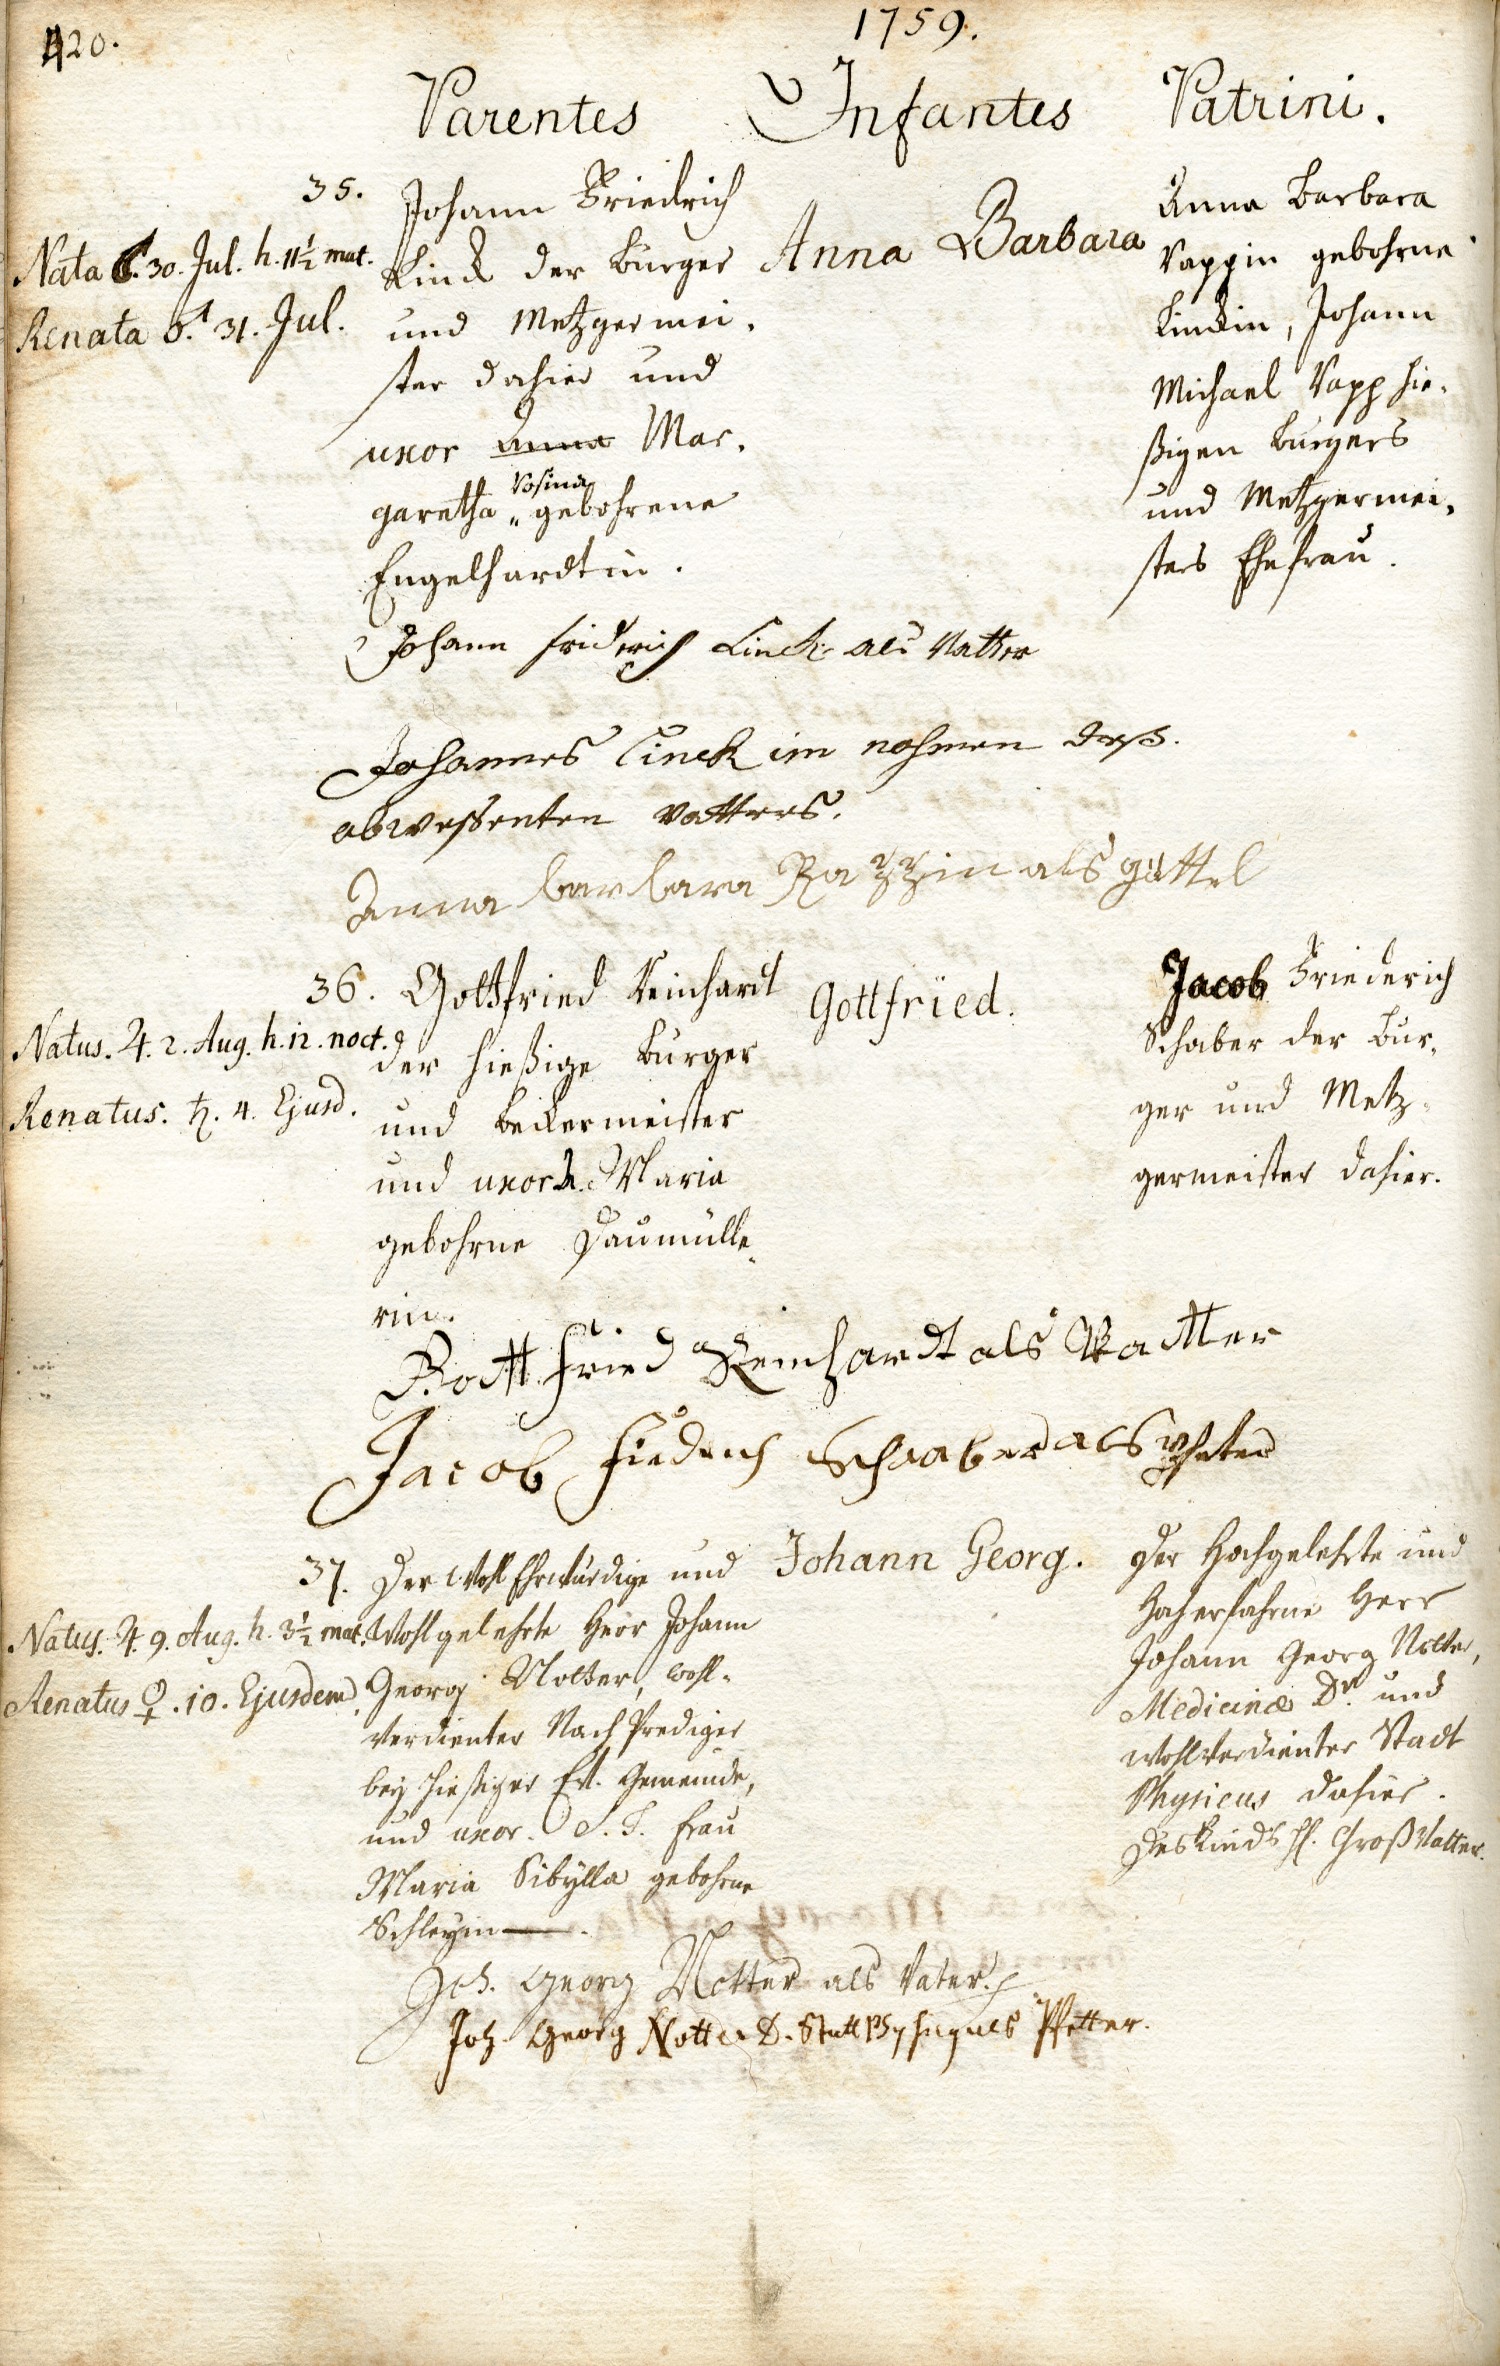 420.
1759.
Parentes Infantes Patrini.
35.
Nata ☾. 30. Jul. h. 11½ mat.
Renata ♂. 31. Jul.
Johann Friedrich
Linck der Burger
und Metzgermei-
ster dahier und
uxor Anna Mar-
garetha Rosina gebohrene
Engelhardtin.
Anna Barbara
Anna Barbara
Rappin gebohrne
Linckin, Johann
Michael Rapp hie-
ßigen Burgers
und Metzgermei-
sters Ehefrau.
Johann Friderich Linck als Vatter
Johannes Linck im nahmen deß
abweßenten vatters.
Anna barbara Rappin als göttel
36.
Natus. ♃. 2. Aug. h. 12. noct.
Renatus. ♄. 4. Ejusd.
Gottfried Reinhardt
der hießige Burger
und Beckermeister
und uxor A. Maria
gebohrne Daumülle-
rin.
Gottfried.
Jacob Friederich
Schaber der Bur-
ger und Metz-
germeister dahier.
Gottfried Reinhardt als Vatter
Jacob Fiedrich Schaaber als Pfeter
37.
Natus. ♃. 9. Aug. h. 3½ mat.
Renatus ♀. 10. Ejusdem.
Der WohlEhrwürdige und
Wohlgelehrte Herr Johann
Georg Notter, wohl-
verdienter Nach Prediger
bey hießiger Ev. Gemeinde,
und uxor. S. T. Frau
Maria Sibylla gebohrne
Schleyin.
Johann Georg.
Der Hochgelehrte und
Hocherfahrne Herr
Johann Georg Notter,
Medicinæ Dr. und
wohlverdienter Stadt
Physicus dahier.
Des Kinds H. GroßVatter.
Joh. Georg Notter als Vater.
Joh. Georg Notter D. Statt Physicus Pfetter.